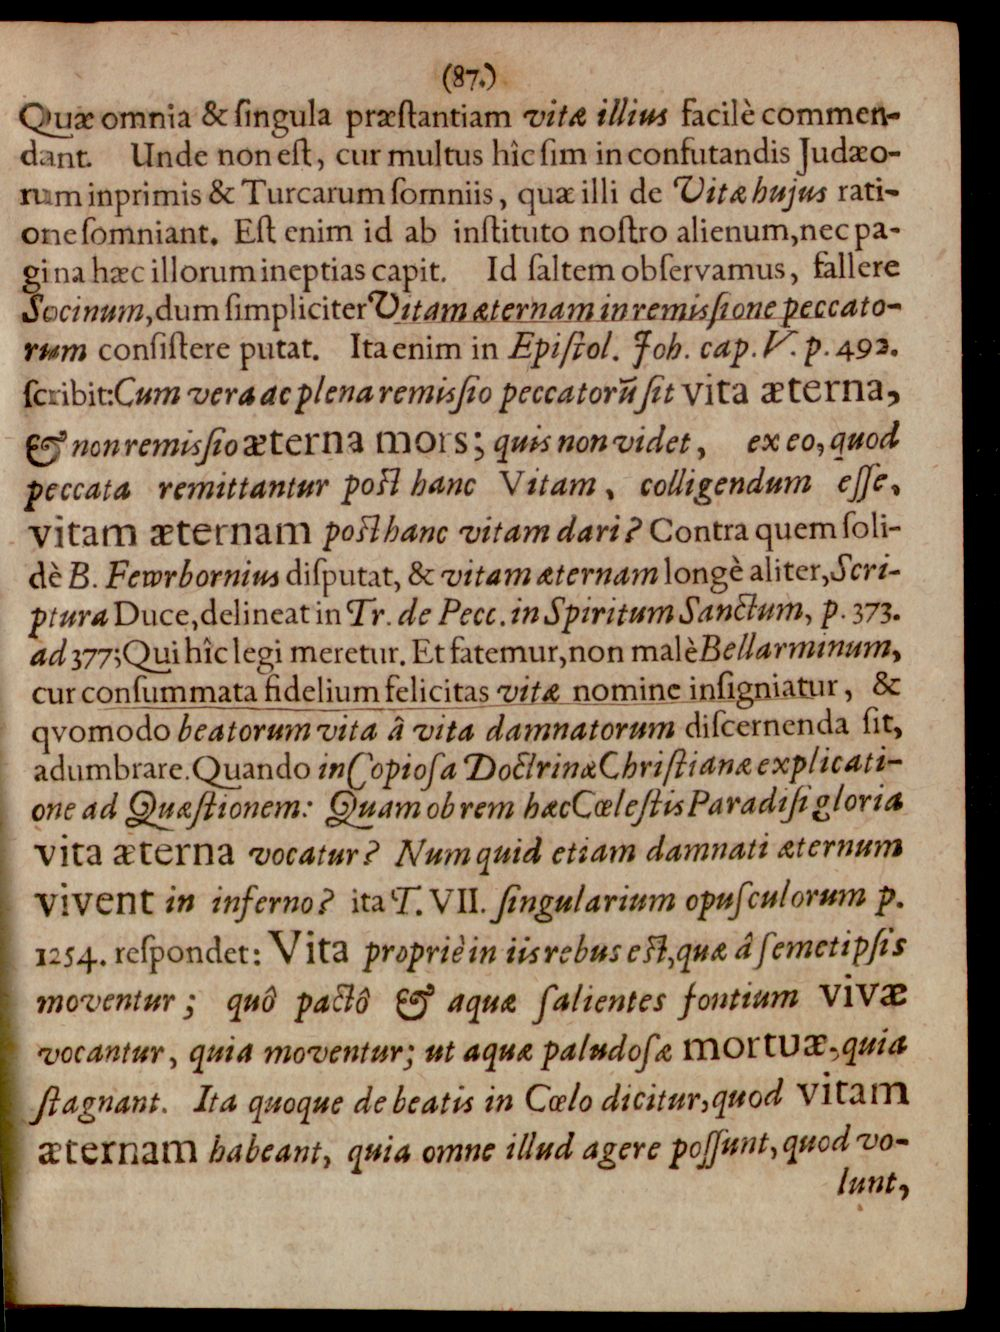 (87.)
Quæ omnia & ſingula præſtantiam vitæ illius facilè commen-
dant. Unde non eſt, cur multus hîc ſim in confutandis Judæo-
rum inprimis & Turcarum ſomniis, quæ illi de Vitæ hujus rati-
one ſomniant. Eſt enim id ab inſtituto noſtro alienum, nec pa-
gina hæc illorum ineptias capit. Id ſaltem obſervamus, fallere
Socinum, dum ſimpliciter Vitam æternam in remiſſione peccato-
rum conſiſtere putat. Ita enim in Epiſtol. Joh. cap. V. p. 492.
ſcribit: Cum vera ac plena remiſſio peccatorũ ſit vita æterna,
& non remiſſio æterna mors; quis non videt, ex eo, quod
peccata remittantur poſt hanc Vitam, colligendum eſſe,
vitam æternam poſt hanc vitam dari? Contra quem ſoli-
dè B. Fewrbornius diſputat, & vitam æternam longè aliter, Scri-
ptura Duce, delineat in Tr. de Pecc. in Spiritum Sanctum, p. 373.
ad 377; Qui hîc legi meretur. Et fatemur, non malè Bellarminum,
cur conſummata fidelium felicitas vitæ nomine inſigniatur, &
qvomodo beatorum vita â vita damnatorum diſcernenda ſit,
adumbrare. Quando in Copioſa Doctrinæ Chriſtianæ explicati-
one ad Quæſtionem: Quam ob rem hæc Cœleſtis Paradiſi gloria
vita æterna vocatur? Numquid etiam damnati æternum
vivent in inferno? ita T. VII. ſingularium opuſculorum p.
1254. reſpondet: Vita propriè in iis rebus eſt, quæ â ſemetipſis
moventur; quô pactô & aquæ ſalientes fontium vivæ
vocantur, quia moventur; ut aquæ paludoſæ mortuæ, quia
ſtagnant. Ita quoque de beatis in Cœlo dicitur, quod vitam
æternam habeant, quia omne illud agere poſſunt, quod vo-
lunt,